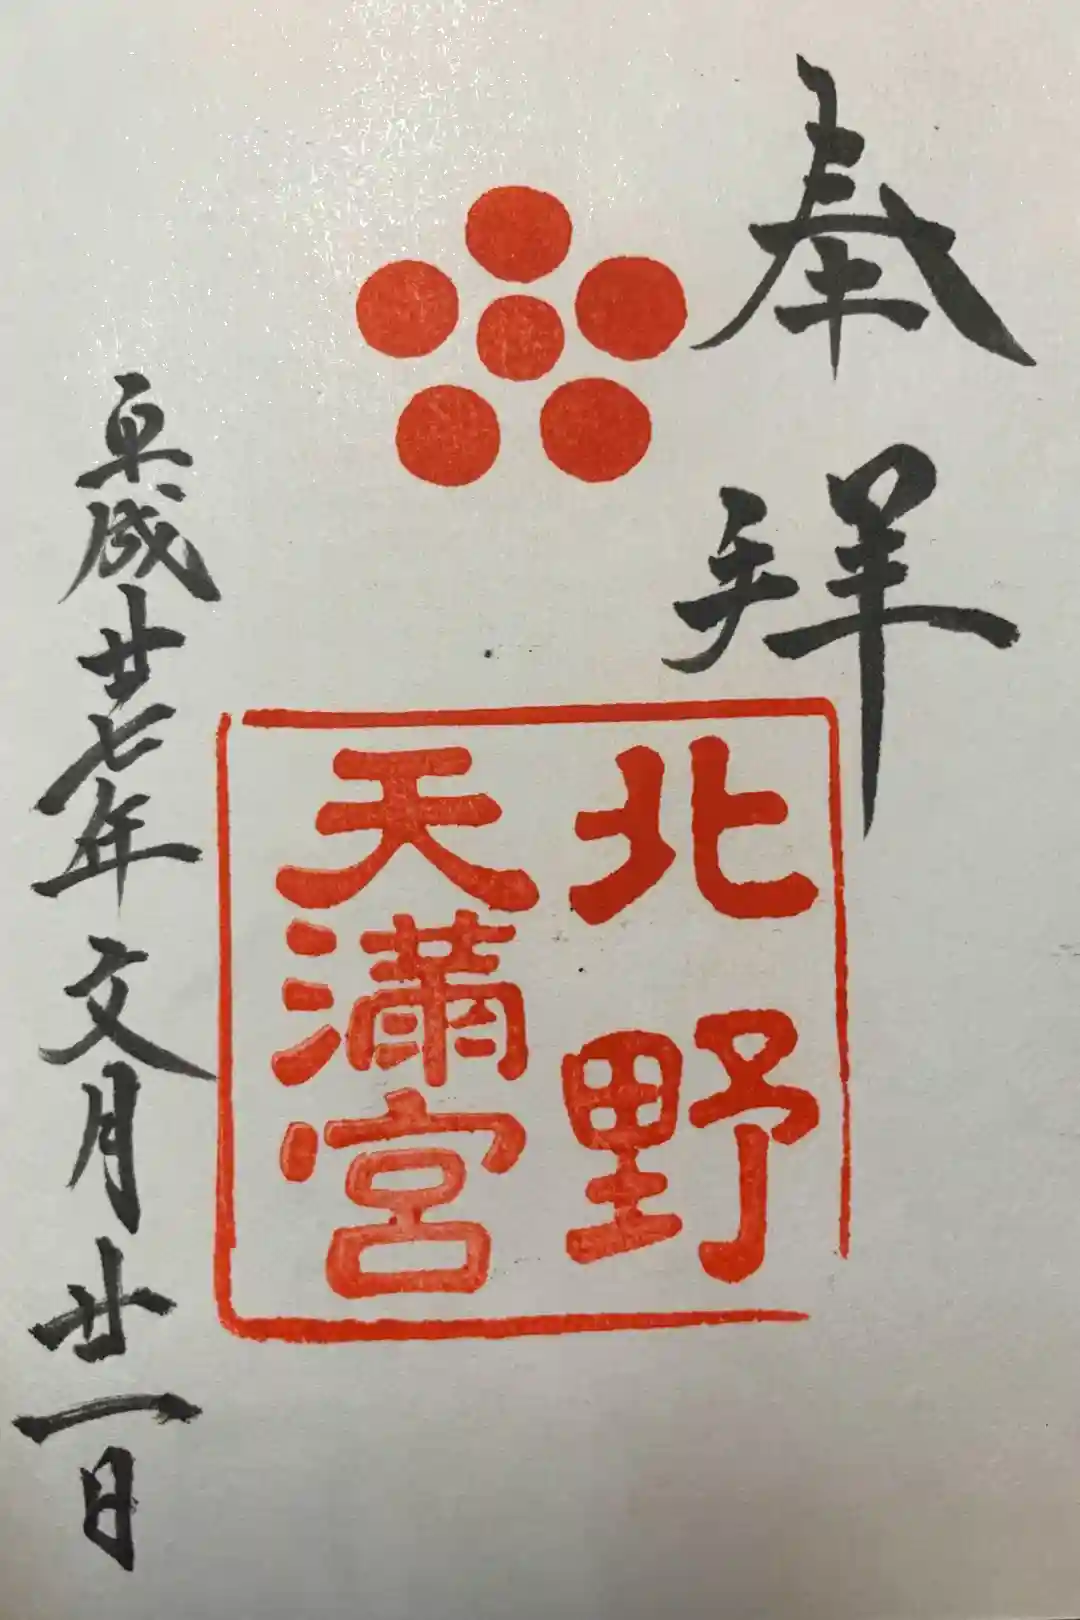 奉拝
北野
天満宮
平成廿七年文月廿一日